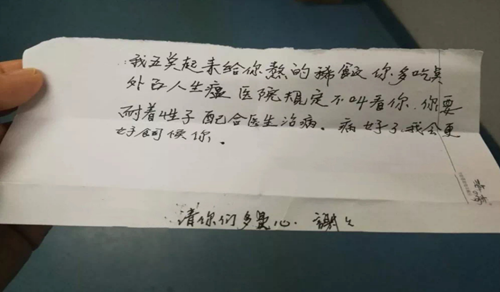 我五点起来给你熬的稀饭你多吃点
外石人生虚医院规定不叫看你.你要
耐着性子配合医生治病.病好了我会更
好伺候你.
请你们多费心.谢之